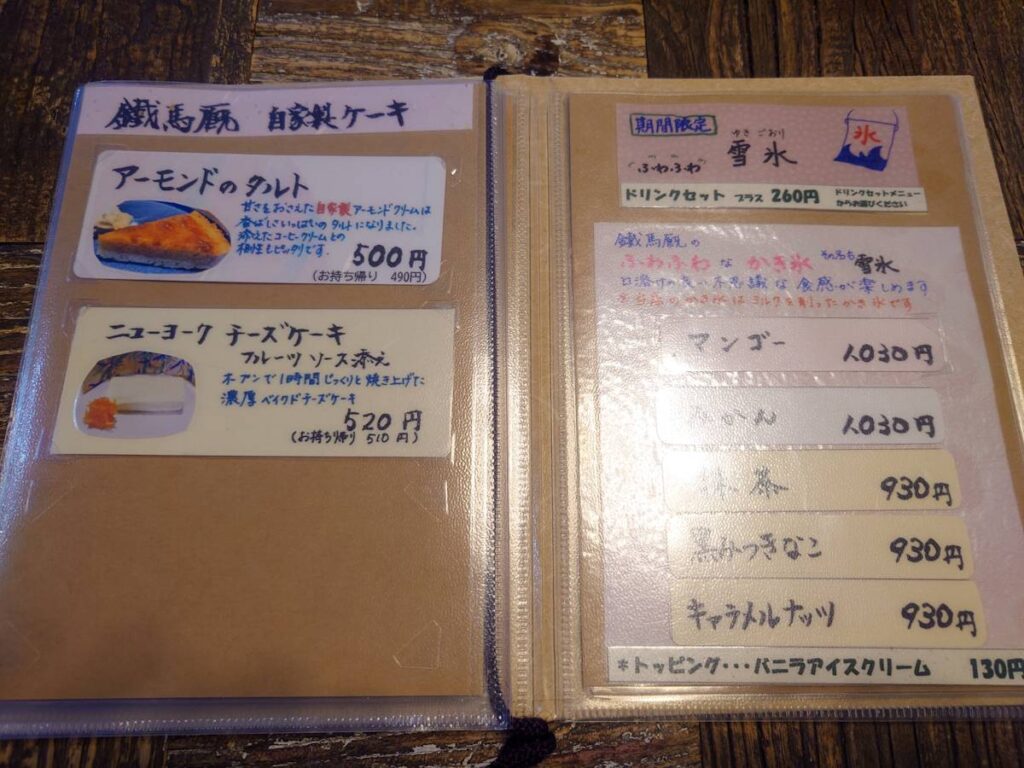 鐵馬厩 自家製ケーキ
アーモンドの タルト
甘さをおさえた自家製アーモンドクリームは
香ばしさいっぱいの タルトになりました。
添えたコーヒークリームとの
相性もピッタリです。
500円
(お持ち帰り 490円)
ニューヨーク チーズケーキ
フルーツ ソース添え
オーブンで1時間じっくりと焼き上げた
濃厚ベイクドチーズケーキ
520円
(お持ち帰り 510円)
期間限定
ゆき ごおり
"ふわふわ" 雪氷
氷
ドリンクセット プラス 260円
ドリンクセットメニュー
からお選びください
鐵馬厩の
ふわふわな かき氷 その名も 雪氷
口溶けの良い不思議な食感が楽しめます
※当店のかき氷はミルクを削ったかき氷です
マンゴー 1030円
みかん 1030円
抹茶 930円
黒みつきなこ 930円
キャラメルナッツ 930円
*トッピング・・・バニラアイスクリーム 130円